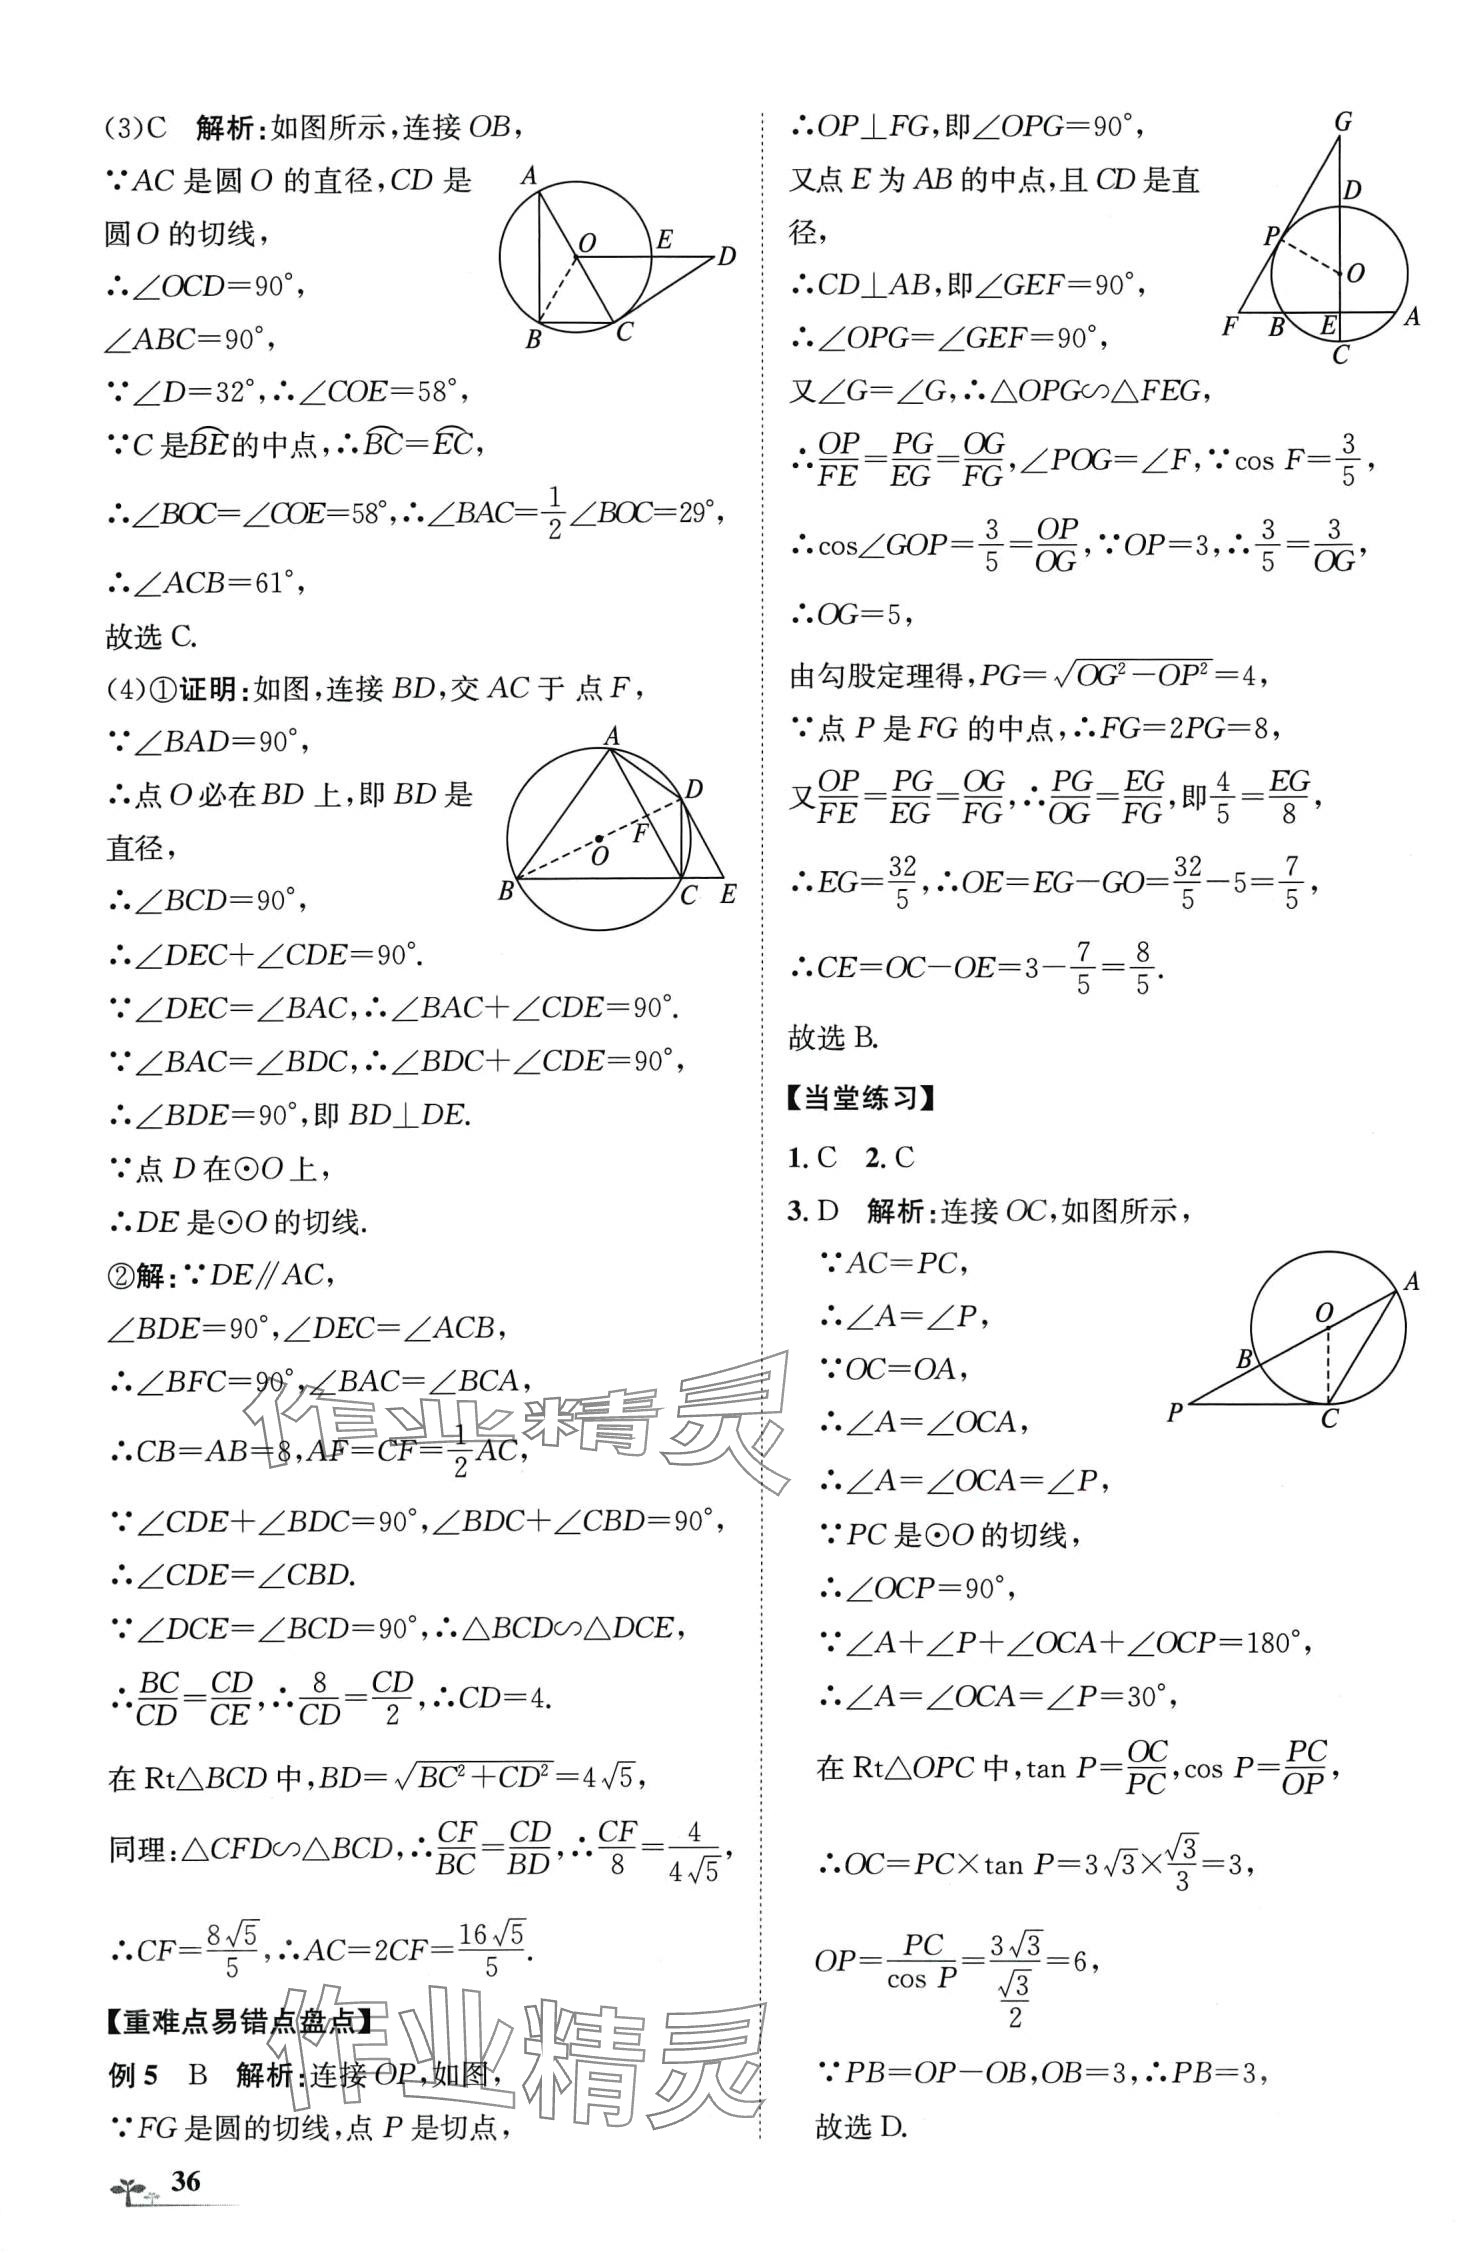 (3)C 解析:如图所示,连接 OB,
∵AC 是圆 O 的直径,CD 是
圆 O 的切线,
∴∠OCD=90°,
∠ABC=90°,
∵∠D=32°,∴∠COE=58°,
∵C 是BE⌒的中点,∴BC⌒=EC⌒,
∴∠BOC=∠COE=58°,∴∠BAC=1/2∠BOC=29°,
∴∠ACB=61°,
故选 C.
A
O
E
D
B
C
(4)①证明:如图,连接 BD,交 AC 于 点 F,
∵∠BAD=90°,
∴点 O 必在 BD 上,即 BD 是
直径,
∴∠BCD=90°,
∴∠DEC+∠CDE=90°.
∵∠DEC=∠BAC,∴∠BAC+∠CDE=90°.
∵∠BAC=∠BDC,∴∠BDC+∠CDE=90°,
∴∠BDE=90°,即 BD⊥DE.
∵点 D 在⊙O 上,
∴DE 是⊙O 的切线.
A
D
F
O
B
C
E
②解:∵DE∥AC,
∠BDE=90°,∠DEC=∠ACB,
∴∠BFC=90°,∠BAC=∠BCA,
∴CB=AB=8,AF=CF=1/2AC,
∵∠CDE+∠BDC=90°,∠BDC+∠CBD=90°,
∴∠CDE=∠CBD.
∵∠DCE=∠BCD=90°,∴△BCD∽△DCE,
∴BC/CD=CD/CE,∴8/CD=CD/2,∴CD=4.
在 Rt△BCD 中,BD=√(BC²+CD²)=4√5,
同理:△CFD∽△BCD,∴CF/BC=CD/BD,∴CF/8=4/(4√5),
∴CF=8√5/5,∴AC=2CF=16√5/5.
【重难点易错点盘点】
例 5 B 解析:连接 OP,如图,
∵FG 是圆的切线,点 P 是切点,
36
∴OP⊥FG,即∠OPG=90°,
又点 E 为 AB 的中点,且 CD 是直
径,
∴CD⊥AB,即∠GEF=90°,
∴∠OPG=∠GEF=90°,
又∠G=∠G,∴△OPG∽△FEG,
∴OP/FE=PG/EG=OG/FG,∠POG=∠F,∵cos F=3/5,
∴cos∠GOP=3/5=OP/OG,∵OP=3,∴3/5=3/OG,
∴OG=5,
由勾股定理得,PG=√(OG²-OP²)=4,
∵点 P 是 FG 的中点,∴FG=2PG=8,
又OP/FE=PG/EG=OG/FG,∴PG/OG=EG/FG,即4/5=EG/8,
∴EG=32/5,∴OE=EG-GO=32/5-5=7/5,
∴CE=OC-OE=3-7/5=8/5.
故选 B.
G
D
P
O
F
B
E
A
C
【当堂练习】
1. C 2. C
3. D 解析:连接 OC,如图所示,
∵AC=PC,
∴∠A=∠P,
∵OC=OA,
∴∠A=∠OCA,
∴∠A=∠OCA=∠P,
∵PC 是⊙O 的切线,
∴∠OCP=90°,
∵∠A+∠P+∠OCA+∠OCP=180°,
∴∠A=∠OCA=∠P=30°,
在 Rt△OPC 中,tan P=OC/PC,cos P=PC/OP,
∴OC=PC×tan P=3√3×√3/3=3,
OP=PC/cos P=3√3/(√3/2)=6,
∵PB=OP-OB,OB=3,∴PB=3,
故选 D.
A
O
B
P
C
作业精灵
作业精灵